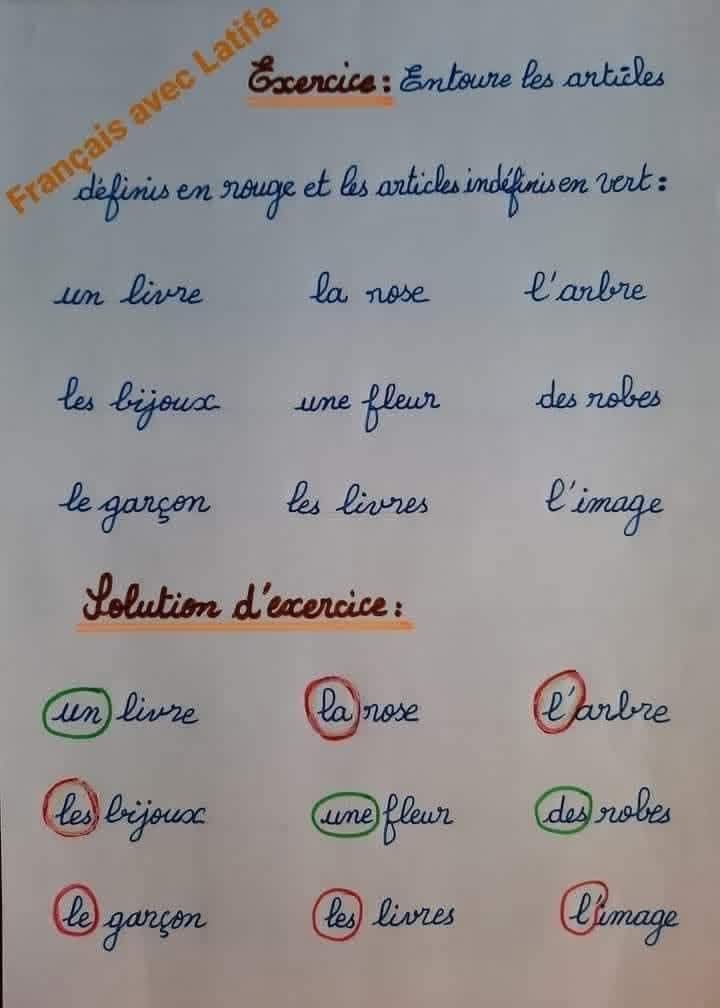 Français avec Latifa
Exercice : Entoure les articles
définis en rouge et les articles indéfinis en vert :
un livre la rose l'arbre
les bijoux une fleur des robes
le garçon les livres l'image
Solution d'exercice :
un livre la rose l'arbre
les bijoux une fleur des robes
le garçon les livres l'image